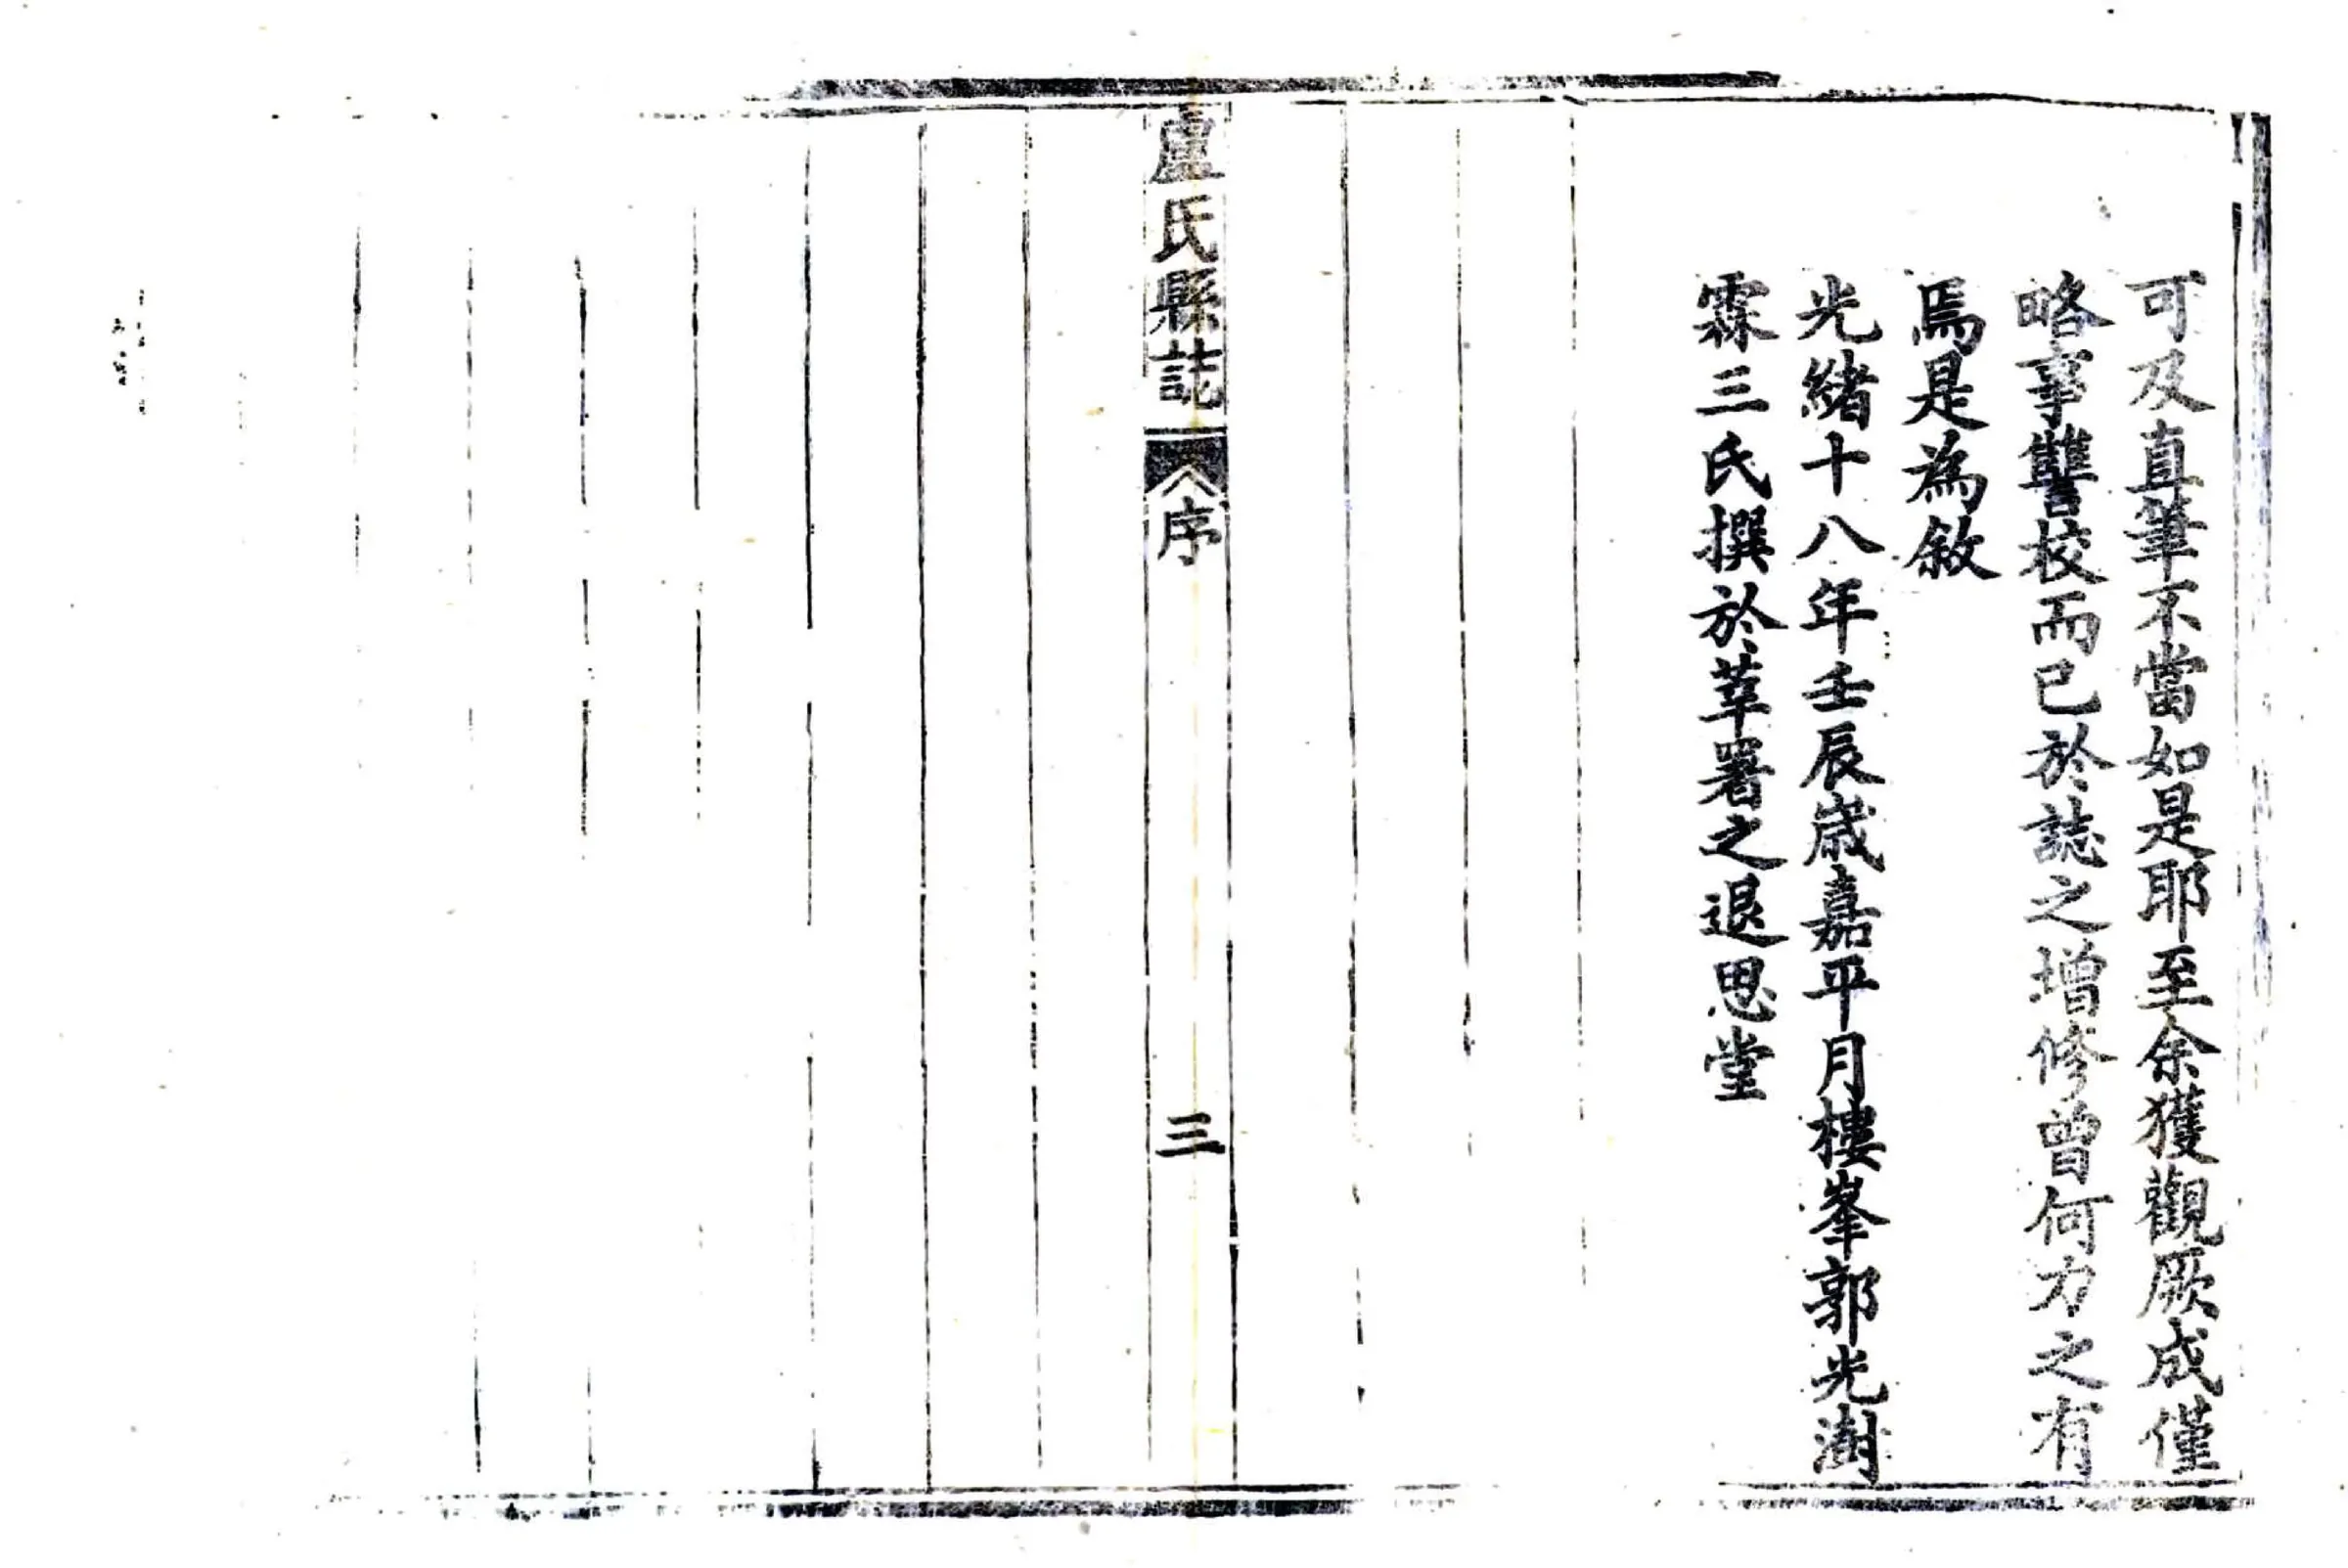 可及直筆不當如是耶至余獲觀厥成僅
略事讐校而已於誌之增修曾何力之有
焉是為敘
光緒十八年壬辰歲嘉平月樓峯郭光澍
霖三氏撰於莘署之退思堂
盧氏縣誌
序
三